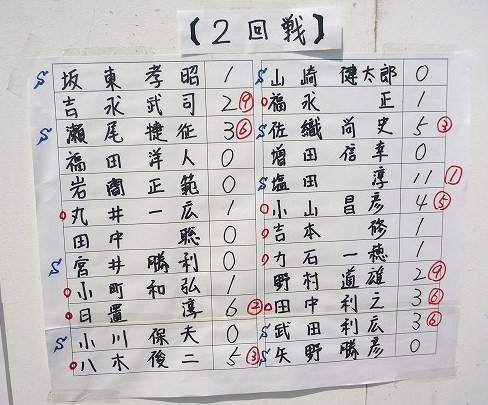 【2回戦】
S 坂東孝昭 1
吉永武司 2 ⑨
S 瀬尾捷征 3 ⑥
福田洋人 0
岩間正範 0
丸井一広 1
田中聡 0
S 宮井勝利 0
小町和弘 1
日置淳 6 ②
S 小川保夫 0
八木俊二 5 ③
S 山崎健太郎 0
福永正 1
S 佐織尚史 5 ③
増田信幸 0
S 塩田淳 11 ①
小山昌彦 4 ⑤
吉本修 1
力石一穂 1
野村道雄 2 ⑨
田中利之 3 ⑥
S 武田利広 3 ⑥
S 矢野勝彦 0